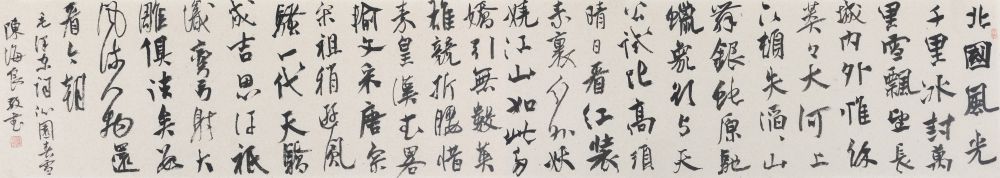 北國風光
千里冰封萬
里雪飄望長
城内外惟餘
莽々大河上
下頓失滔、山
舞銀蛇原馳
蠟象欲与天
公試比高須
晴日看紅裝
素裹分外妖
嬈江山如此多
嬌引無數英
雄競折腰惜
秦皇漢武畧
輸文采唐宗
宋祖稍遜風
騷一代天驕
成吉思汗祇
識彎弓射大
雕俱往矣數
風流人物還
看今朝
毛澤東詞沁園春雪
陳海良敬書